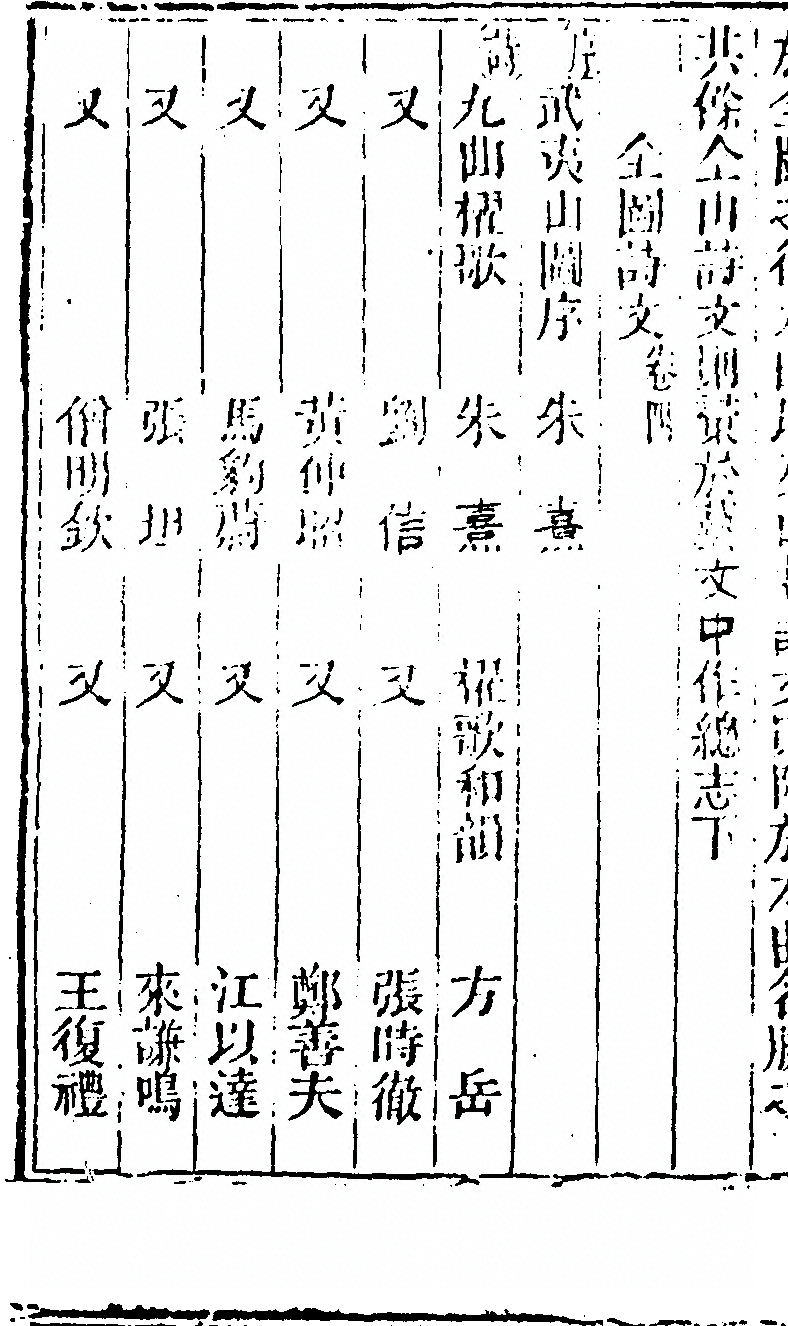 其餘全山詩文則彙於藝文中作總志下
全圖詩文卷四
序 武夷山圖序 朱熹
詩 九曲櫂歌 朱熹 櫂歌和韻 方岳
又 劉信 又 張時徹
又 黃仲昭 又 鄭善夫
又 馬豹蔚 又 江以達
又 張坦 又 來謙鳴
又 僧明欽 又 王復禮